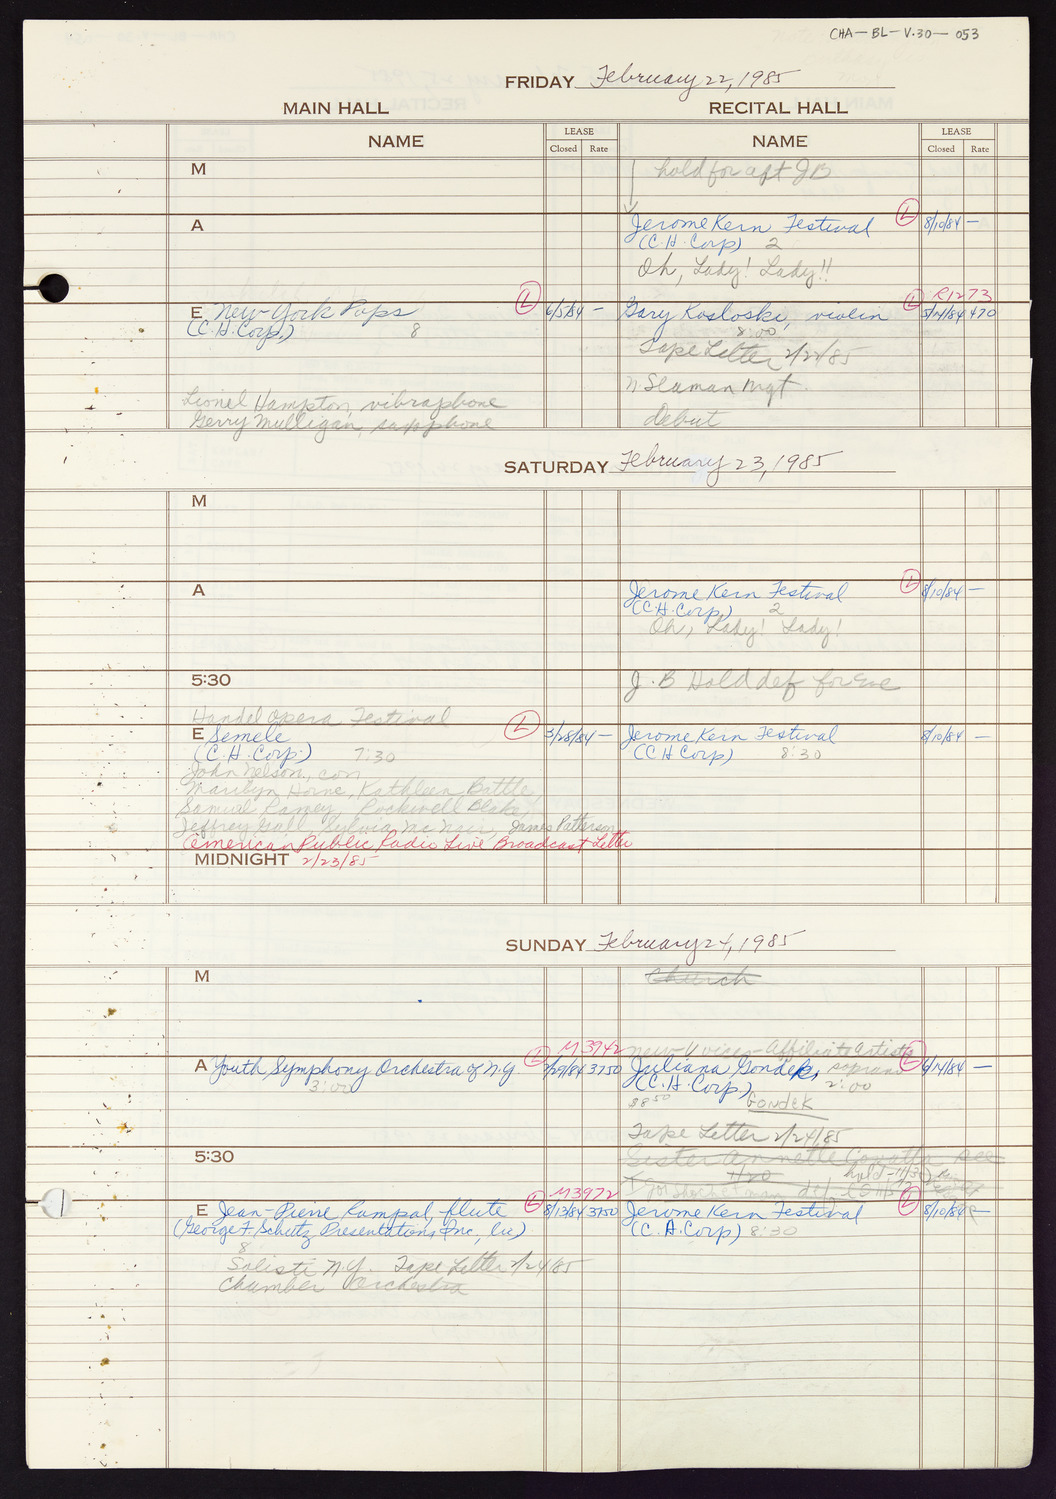 CHA-BL-V.30-053
FRIDAY February 22, 1985
MAIN HALL
RECITAL HALL
NAME
LEASE
Closed Rate
NAME
LEASE
Closed Rate
M
hold for aft JB
A
Jerome Kern Festival (L) 8/10/84 —
(C.H. Corp) 2
Oh, Lady! Lady!!
R1273
E New York Pops (L) 6/5/84 —
(C.H. Corp.) 8
Gary Kosloski, violin (L) 5/14/84 470
8:00
Tape Letter 2/22/85
N Seaman Mgt.
debut
Lionel Hampton, vibraphone
Gerry Mulligan, saxophone
SATURDAY February 23, 1985
M
A
Jerome Kern Festival (L) 8/10/84 —
(C.H. Corp) 2
Oh, Lady! Lady!
5:30
J.B Hold def for Eve
Handel Opera Festival
E Semele (L) 3/28/84 —
(C.H. Corp.) 7:30
Jerome Kern Festival 8/10/84 —
(CH Corp) 8:30
John Nelson, con
Marilyn Horne, Kathleen Battle
Samuel Ramey, Rockwell Blake,
Jeffrey Gall, Sylvia McNair, James Patterson
American Public Radio Live Broadcast Letter
MIDNIGHT 2/23/85
SUNDAY February 24, 1985
M
Church
M3942
New Voices - Affiliate Artists
A Youth Symphony Orchestra of N.Y (L) 3750
3:00
Juliana Gondek, soprano (L) 6/14/84 —
(C.H. Corp.) 2:00
$8.50
GONDEK
Tape Letter 2/24/85
5:30
Sister Annette
M3972
E Jean-Pierre Rampal, flute (L) 8/13/84 3750
(George F. Schutz Presentations Inc,
8
Jerome Kern Festival (L) 8/10/84
(C.H. Corp) 8:30
Solisti N.Y. Tape Letter 2/24/85
Chamber Orchestra